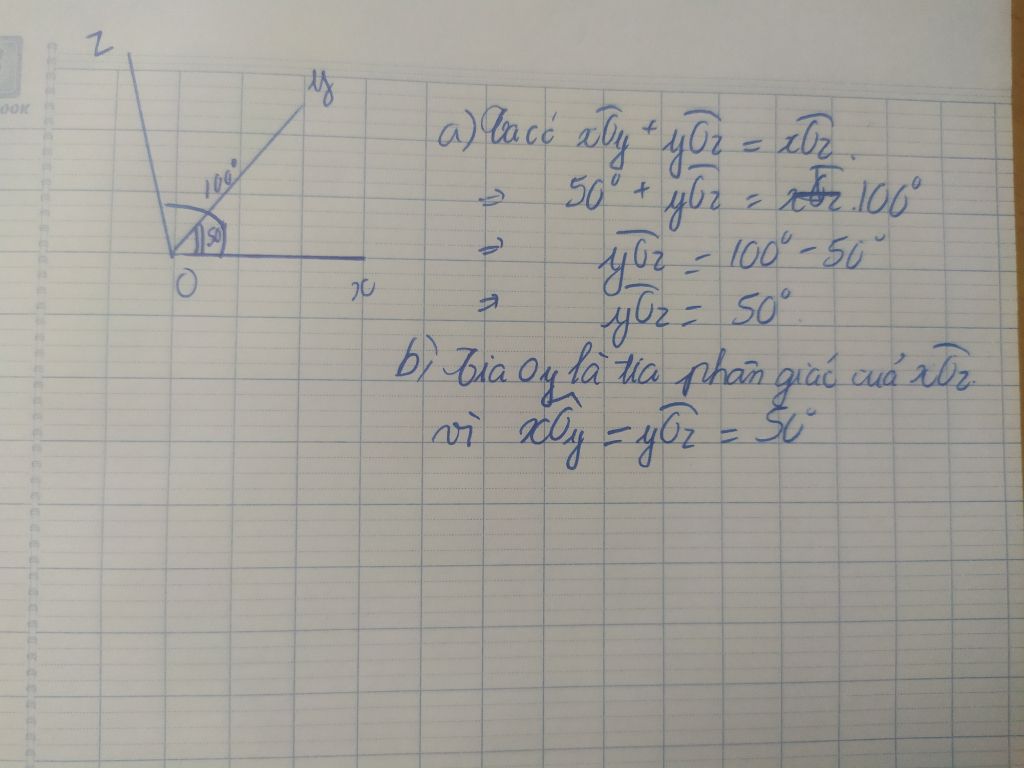 z
y
100°
50
O
x
a) Ta có xOy + yOz = xOz.
⇒ 50° + yOz = 100°
⇒ yOz = 100° - 50°
⇒ yOz = 50°.
b) Tia Oy là tia phân giác của xOz.
vì xOy = yOz = 50°